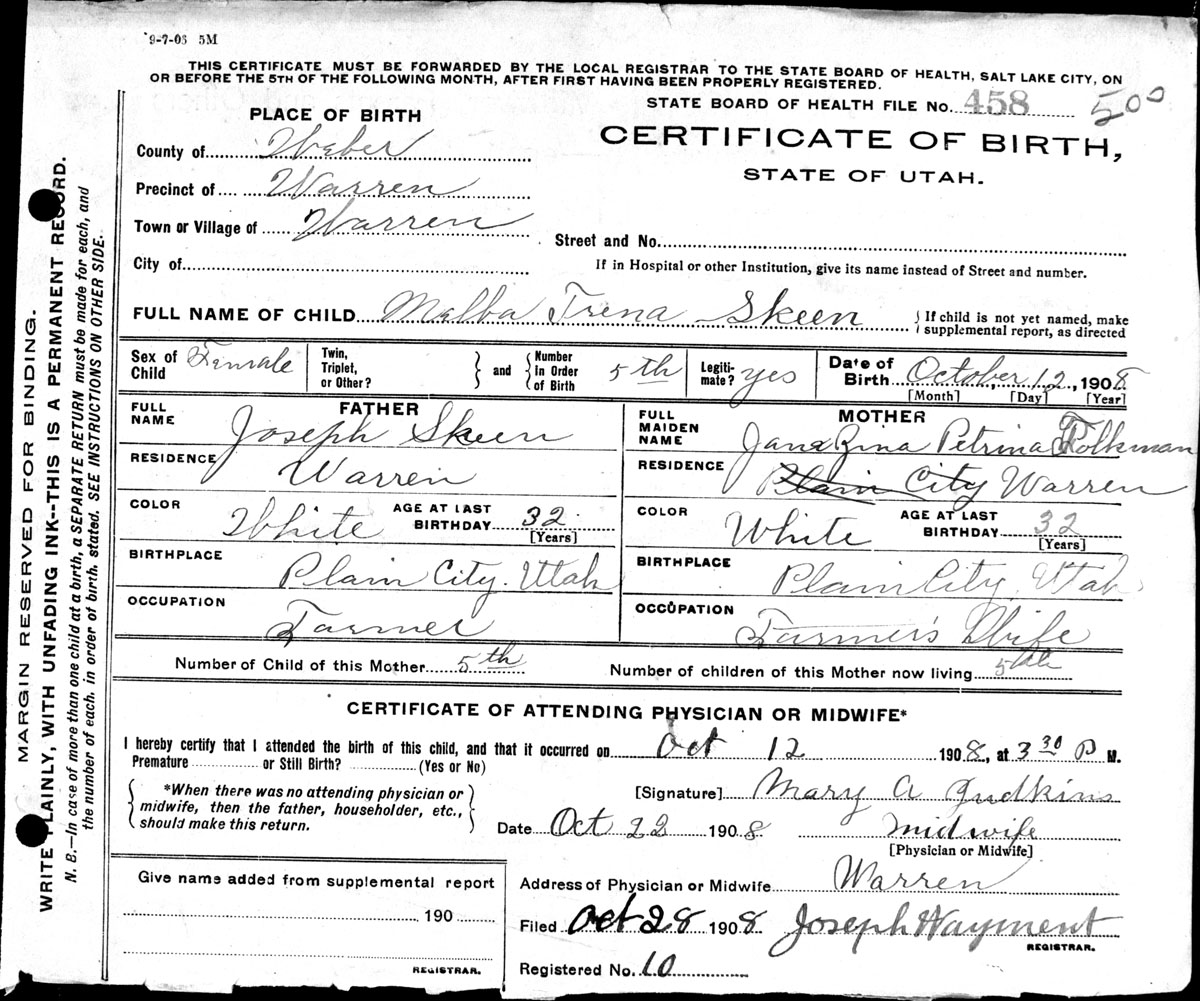 9-7-06 5M
THIS CERTIFICATE MUST BE FORWARDED BY THE LOCAL REGISTRAR TO THE STATE BOARD OF HEALTH, SALT LAKE CITY, ON
OR BEFORE THE 5TH OF THE FOLLOWING MONTH, AFTER FIRST HAVING BEEN PROPERLY REGISTERED.
STATE BOARD OF HEALTH FILE No. 458 500
PLACE OF BIRTH
CERTIFICATE OF BIRTH,
STATE OF UTAH.
County of Weber
Precinct of Warren
Town or Village of Warren
Street and No.
City of
If in Hospital or other Institution, give its name instead of Street and number.
FULL NAME OF CHILD Melba Trena Skeen { If child is not yet named, make
supplemental report, as directed
Sex of Child Female Twin, Triplet, or Other? } and { Number In Order of Birth 5th Legiti-mate? yes Date of Birth October 12, 1908
[Month] [Day] [Year]
FULL NAME FATHER Joseph Skeen
RESIDENCE Warren
COLOR White AGE AT LAST BIRTHDAY 32 [Years]
BIRTHPLACE Plain City. Utah
OCCUPATION Farmer
FULL MAIDEN NAME MOTHER Jane Zina Petrina Folkman
RESIDENCE Plain City Warren
COLOR White AGE AT LAST BIRTHDAY 32 [Years]
BIRTHPLACE Plain City, Utah
OCCUPATION Farmer's Wife
Number of Child of this Mother 5th Number of children of this Mother now living 5th
CERTIFICATE OF ATTENDING PHYSICIAN OR MIDWIFE*
I hereby certify that I attended the birth of this child, and that it occurred on Oct 12 1908, at 3 30 P M.
Premature or Still Birth? (Yes or No)
*When there was no attending physician or
midwife, then the father, householder, etc.,
should make this return.
[Signature] Mary A Judkins
Date Oct 22 1908 midwife
[Physician or Midwife]
Give name added from supplemental report
190
REGISTRAR.
Address of Physician or Midwife Warren
Filed Oct 28 1908 Joseph Wayment
REGISTRAR.
Registered No. 10
MARGIN RESERVED FOR BINDING.
WRITE PLAINLY, WITH UNFADING INK--THIS IS A PERMANENT RECORD.
N. B.—In case of more than one child at a birth, a SEPARATE RETURN must be made for each, and
the number of each, in order of birth, stated. SEE INSTRUCTIONS ON OTHER SIDE.